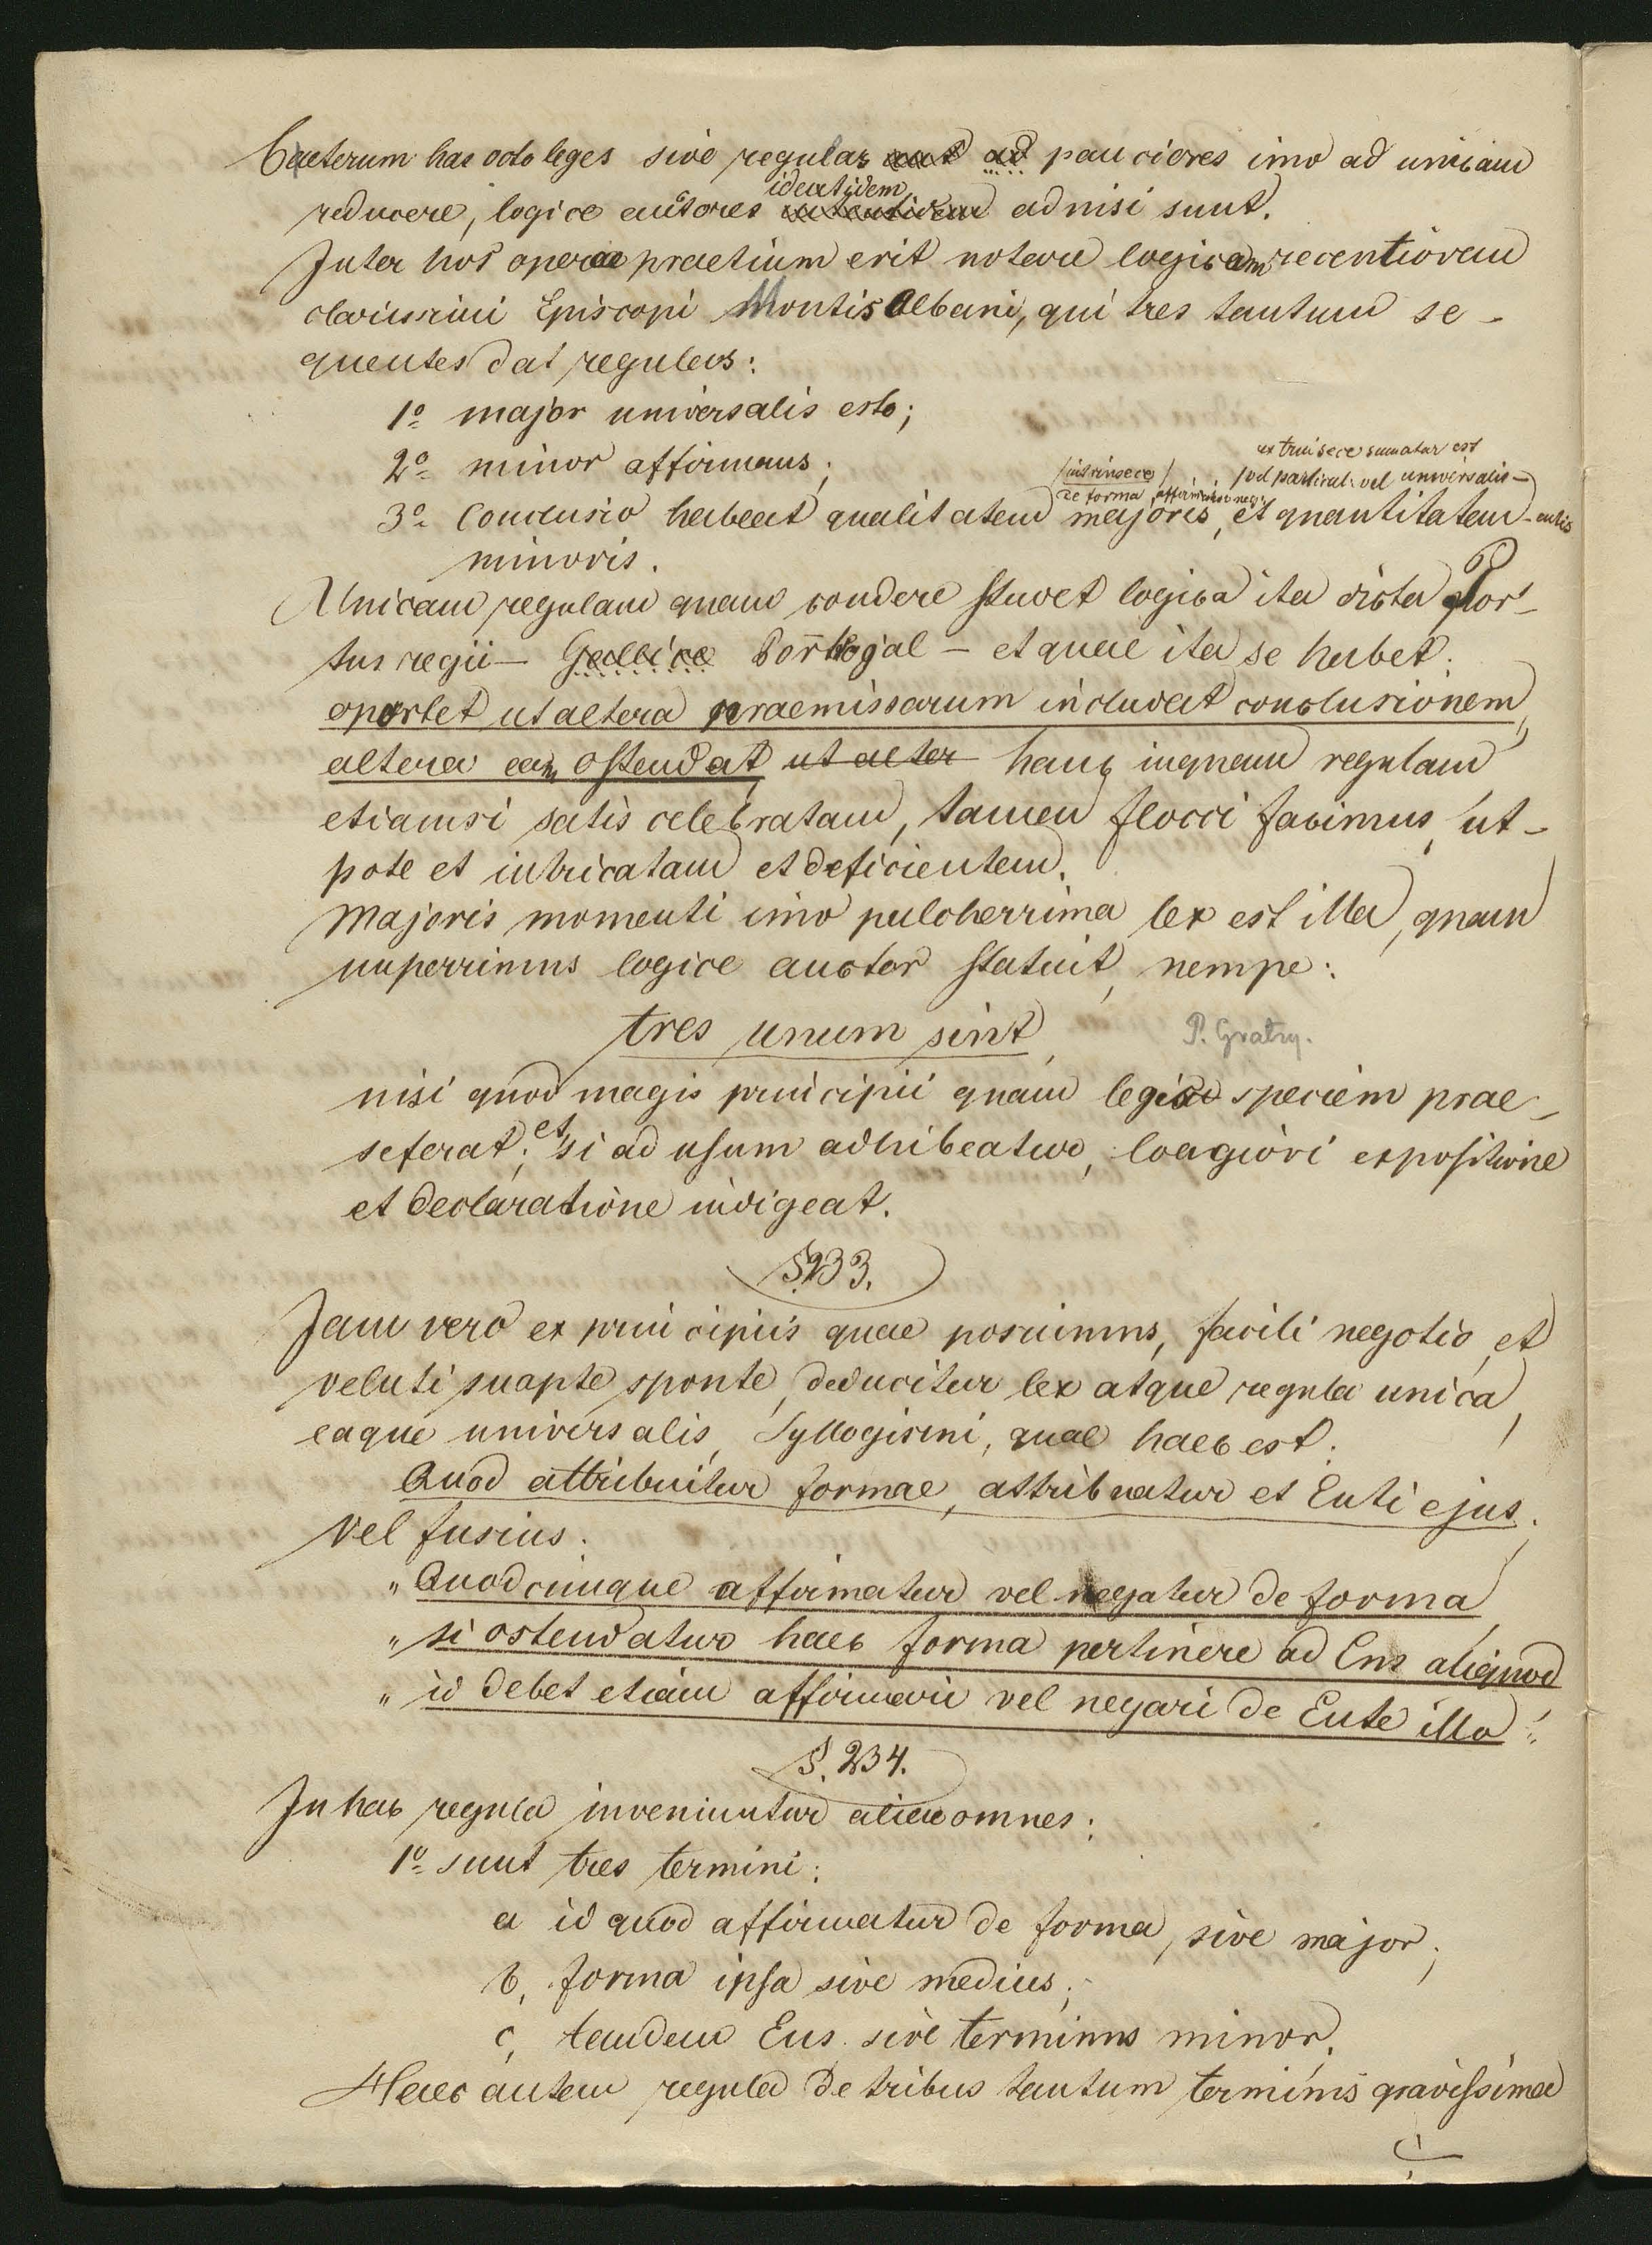 Caeterum has octo leges sive regulas aut ad pauciores imo ad unicam
identidem
reducere, logice autores adnisi sunt.
Inter hos operae praetium erit notare logicam recentiorem
clarissimi Episcopi Montis Albani, qui tres tantum se-
quentes dat regulas:
1º major universalis esto;
2º minor affirmans;
extrinsece sumatur est
/intrinsece/ /vel particul. vel universalis-
de forma affirm. sive neg.
3º Conclusio habeat qualitatem majoris, et quantitatem -entis
minoris.
Unicam regulam quam condere studet logica ita dicta Por-
tus regii - Gallice Portrojal - et quae ita se habet:
oportet ut altera praemissarum includat conclusionem,
altera eam ostendat ut alter hanc inquam regulam
etiamsi satis celebratam, tamen flocci facimus, ut-
pote et intricatam et deficientem.
Majoris momenti imo pulcherrima lex est illa, quam
nuperrimus logice auctor statuit, nempe:
tres unum sint, P. Gratry.
nisi quod magis principii quam legis speciem prae-
seferat; et si ad usum adhibeatur, longiori expositione
et declaratione indigeat.
§233.
Jam vero ex principiis quae posuimus, facili negotio, et
veluti suapte sponte, deducitur lex atque regula unica,
eaque universalis, Syllogismi, quae haec est:
Quod attribuitur formae, attribuatur et Enti ejus;
vel fusius:
„ Quodcumque affirmatur vel negatur de forma,
„ si ostendatur haec forma pertinere ad Ens aliquod
„ id debet etiam affirmari vel negari de Ente illo“.
§. 234.
In hac regula inveniuntur aliae omnes:
1º sunt tres termini:
a id quod affirmatur de forma, sive major;
b, forma ipsa sive medius;
c, tandem Ens sive terminus minor.
Haec autem regula de tribus tantum terminis gravissima